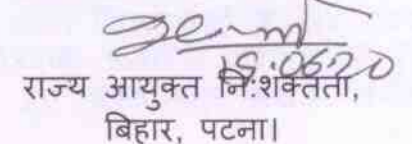 15.06.20
राज्य आयुक्त निःशक्तता,
बिहार, पटना।